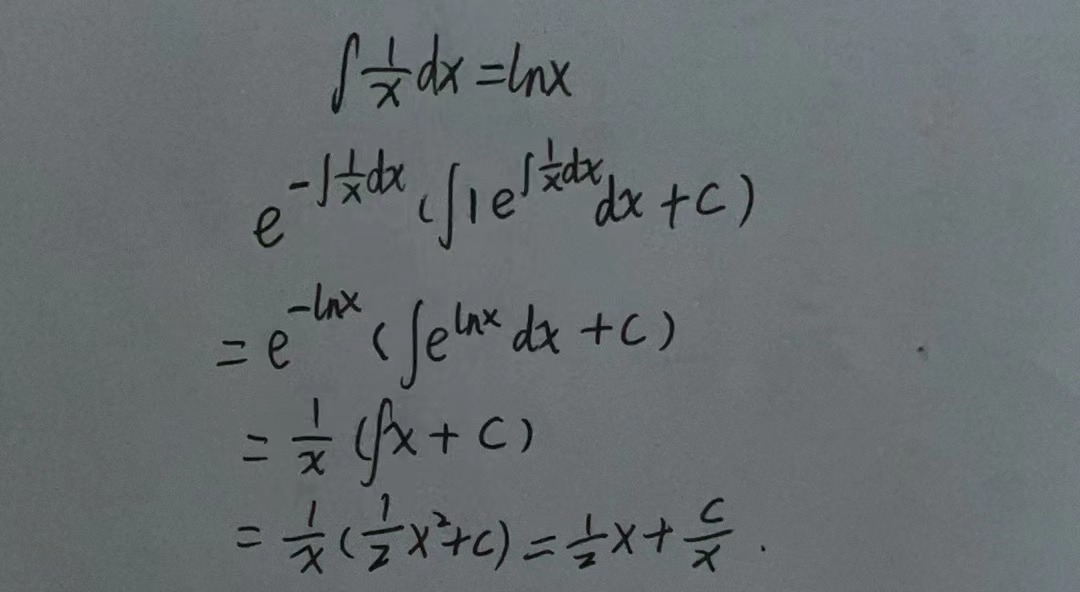 ∫ 1/x dx = lnx
e^(-∫ 1/x dx) (∫ 1 e^(∫ 1/x dx) dx + C)
= e^(-lnx) (∫ e^(lnx) dx + C)
= 1/x (∫x + C)
= 1/x (1/2 x² + C) = 1/2 x + C/x .